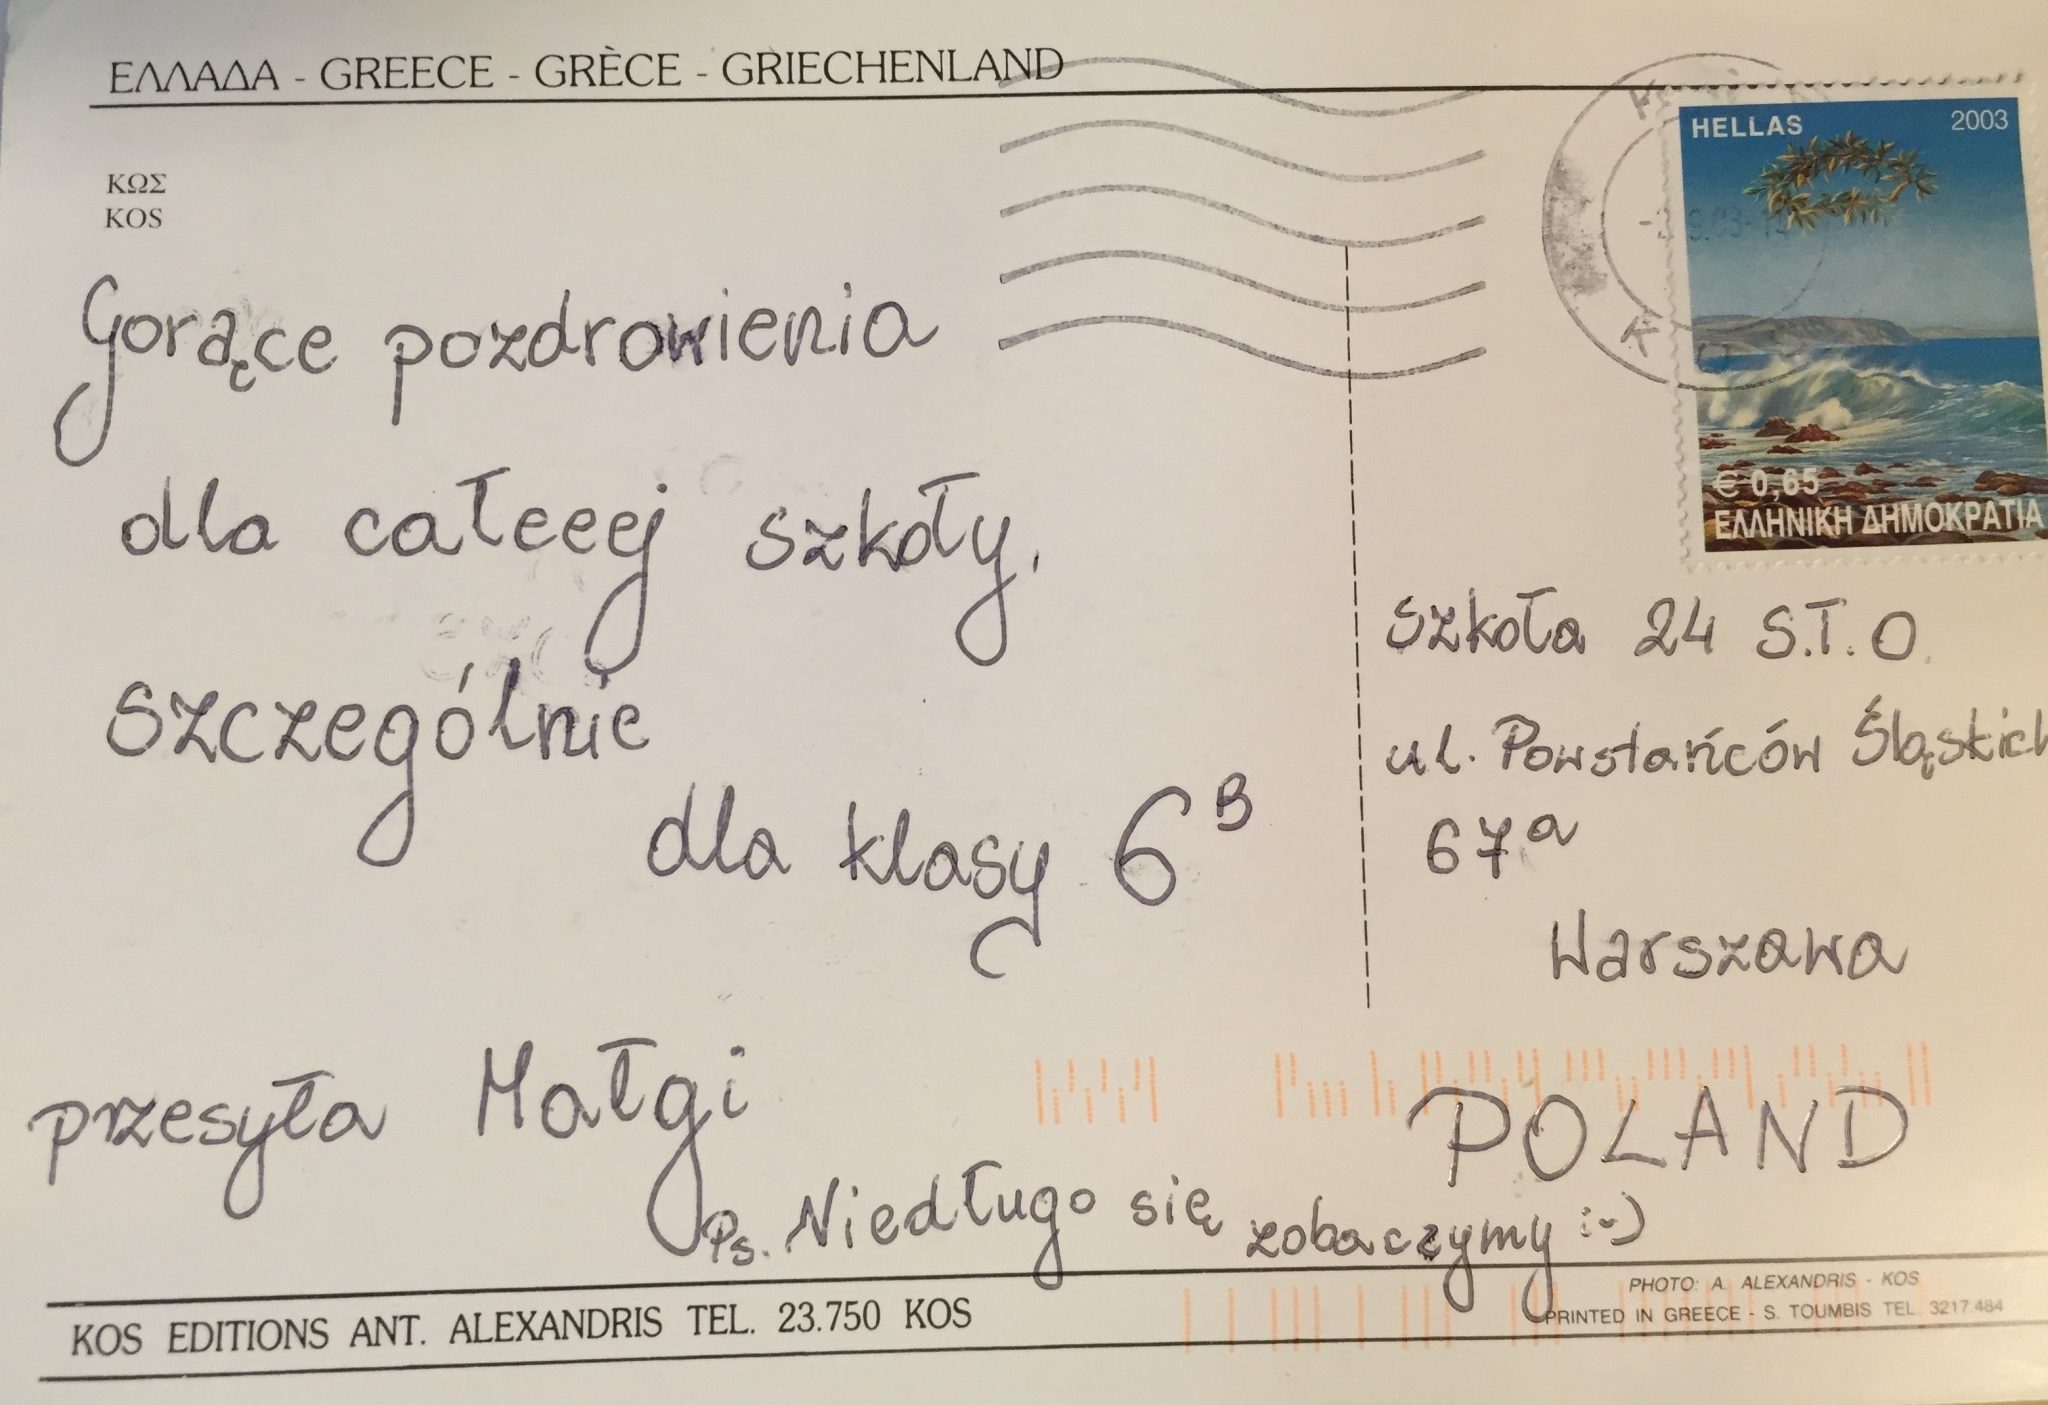 ΕΛΛΑΔΑ - GREECE - GRÈCE - GRIECHENLAND
HELLAS 2003
ΚΩΣ
KOS
Gorące pozdrowienia
dla całeeej szkoły,
szczególnie
dla klasy 6B
przesyła Małgi
Ps. Niedługo się zobaczymy :-)
€ 0,65
ΕΛΛΗΝΙΚΗ ΔΗΜΟΚΡΑΤΙΑ
Szkoła 24 S.T.O.
ul. Powstańców Śląskich
67a
Warszawa
POLAND
KOS EDITIONS ANT. ALEXANDRIS TEL. 23.750 KOS
PHOTO: A. ALEXANDRIS - KOS
PRINTED IN GREECE - S. TOUMBIS TEL. 3217.484